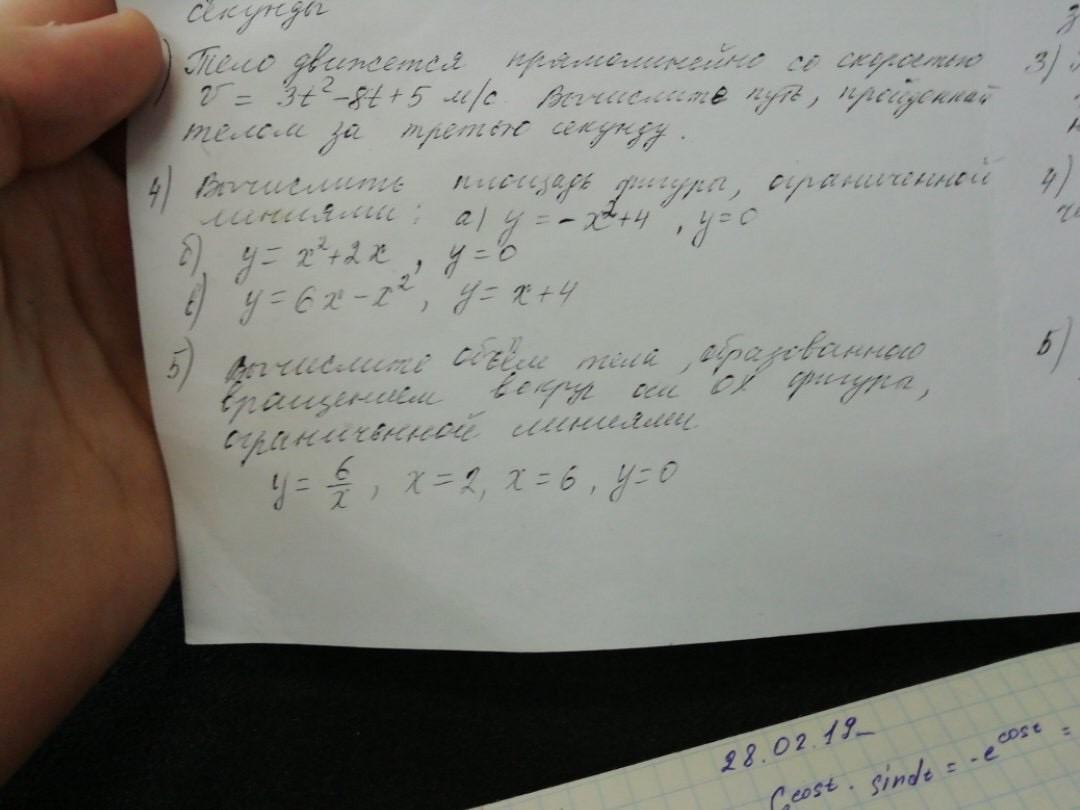 секунды
) Тело движется прямолинейно со скоростью
v = 3t²-8t+5 м/с. Вычислите путь, пройденный
телом за третью секунду.
4) Вычислить площадь фигуры, ограниченной
линиями: а) y = -x²+4 , y=0
б) y = x²+2x , y=0
в) y = 6x-x², y = x+4
5) Вычислите объём тела, образованного
вращением вокруг оси OX фигуры,
ограниченной линиями
y = 6/x , x=2, x=6, y=0
3)
4)
5)
28.02.19
cost · sindt = -e^cost =